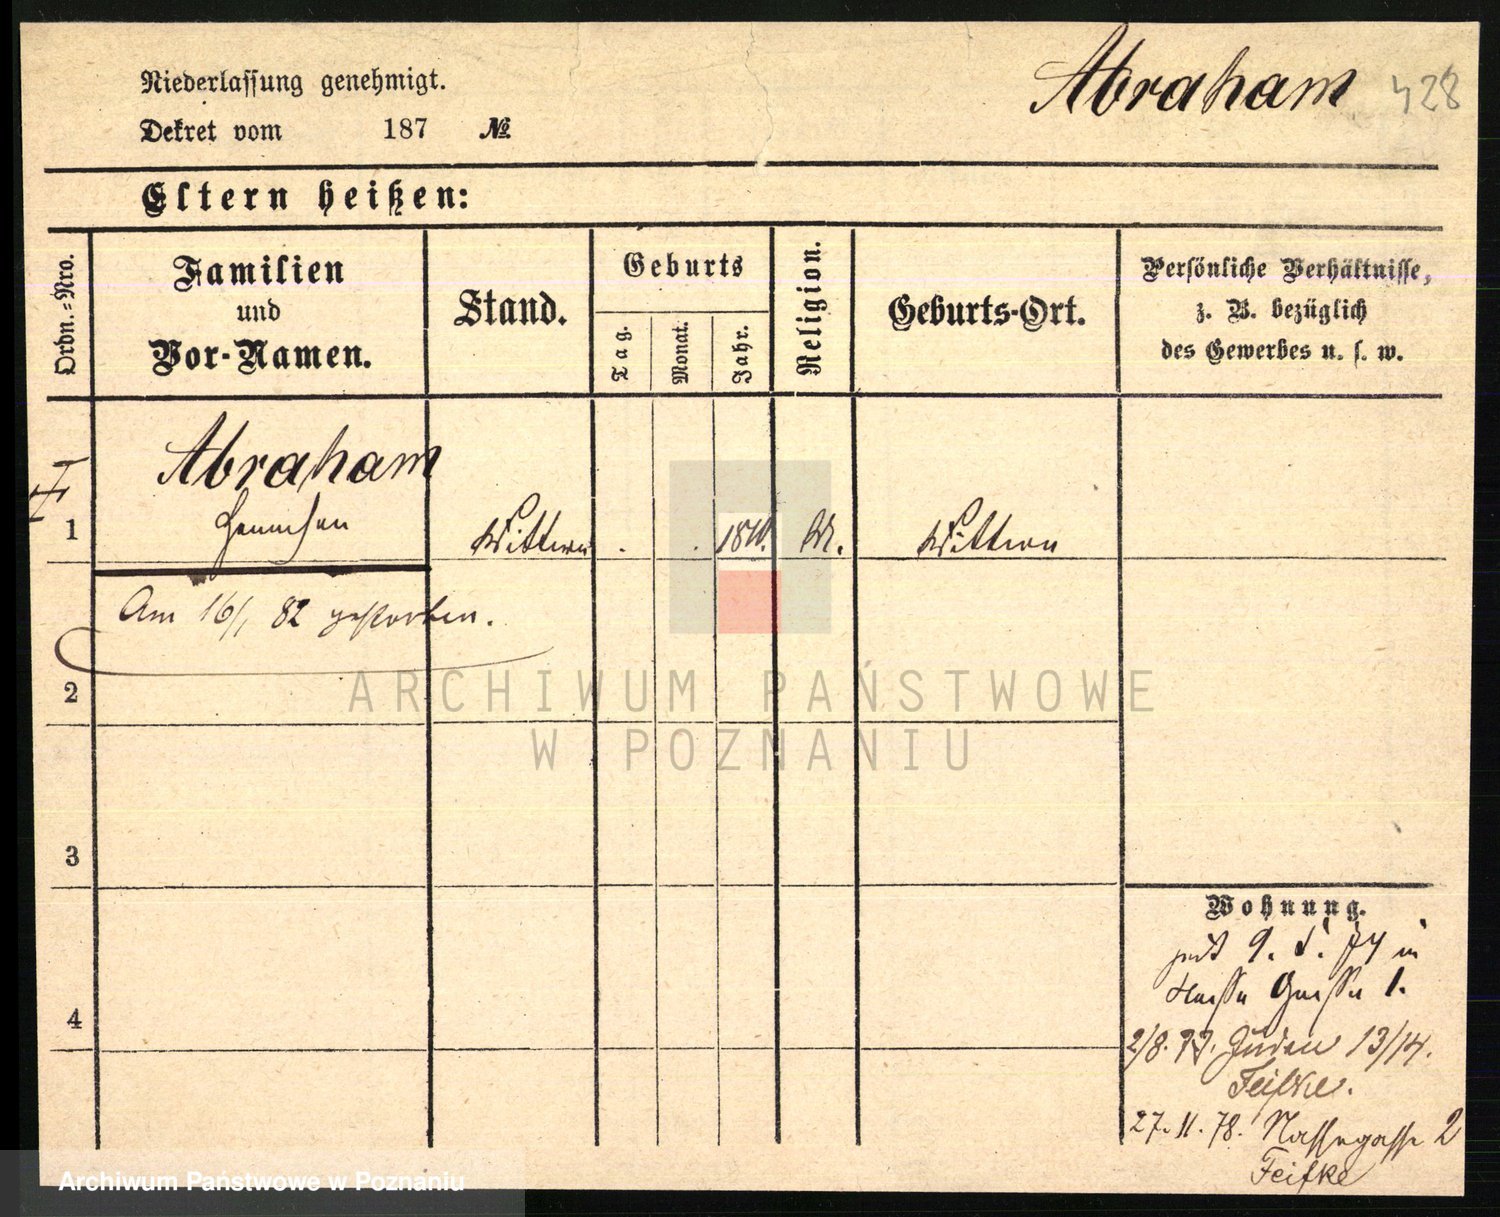 Niederlassung genehmigt.
Dekret vom 187 №
Abraham 428
Eltern heißen:
Ordn.=Nro.
Familien
und
Vor-Namen.
Stand.
Geburts
Tag.
Monat.
Jahr.
Religion.
Geburts-Ort.
Persönliche Verhältnisse,
z. B. bezüglich
des Gewerbes u. s. w.
Abraham
1
Am 16/1 82 gestorben.
2
ARCHIWUM PAŃSTWOWE
W POZNANIU
3
Wohnung.
in
Gasse 1.
4
2/8. 77. Juden 13/14.
Feifke.
27. 11. 78. Nassegasse 2
Feifke
Archiwum Państwowe w Poznaniu